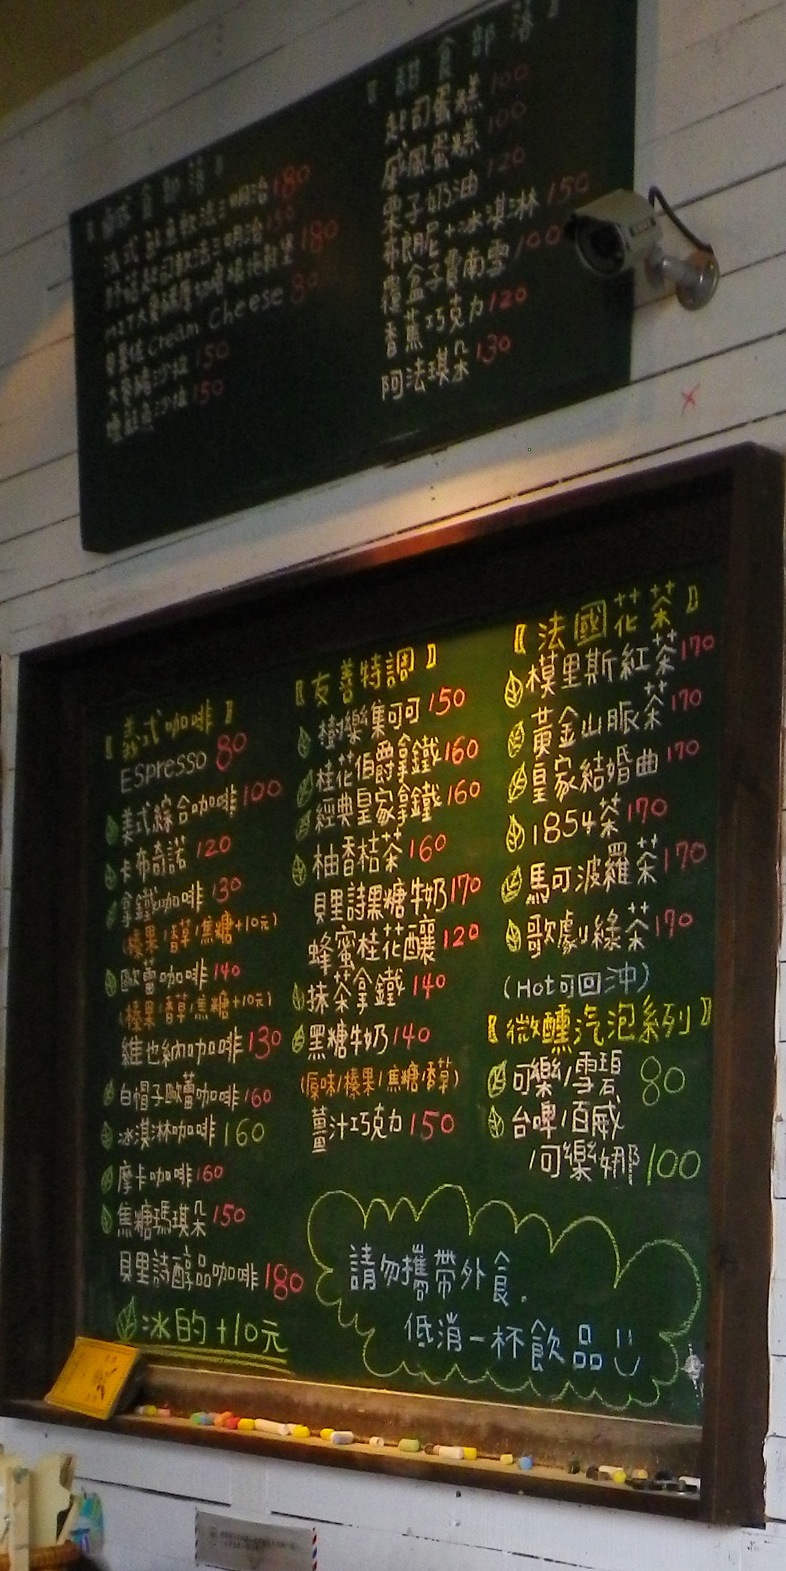 【鹹食部落】
法式鮭魚軟法三明治 180
軟法三明治 150
180
貝量佳 Cream Cheese 80
沙拉 150
燻鮭魚沙拉 150
【甜食部落】
起司蛋糕 100
戚風蛋糕 100
栗子奶油 120
布朗尼+冰淇淋 150
覆盆子費南雪 100
香蕉巧克力 120
阿法琪朵 130
【義式咖啡】
Espresso 80
美式綜合咖啡 100
卡布奇諾 120
拿鐵咖啡 130
(榛果/香草/焦糖+10元)
歐蕾咖啡 140
(榛果/香草/焦糖+10元)
維也納咖啡 130
白帽子歐蕾咖啡 160
冰淇淋咖啡 160
摩卡咖啡 160
焦糖瑪琪朵 150
貝里詩醇品咖啡 180
冰的+10元
【友善特調】
樹樂集可可 150
桂花伯爵拿鐵 160
經典皇家拿鐵 160
柚香桔茶 160
貝里詩黑糖牛奶 170
蜂蜜桂花釀 120
抹茶拿鐵 140
黑糖牛奶 140
(原味/榛果/焦糖/香草)
薑汁巧克力 150
【法國花茶】
模里斯紅茶 170
黃金山脈茶 170
皇家結婚曲 170
1854茶 170
馬可波羅茶 170
歌劇綠茶 170
(Hot可回沖)
【微醺汽泡系列】
可樂/雪碧 80
台啤/百威
/可樂娜 100
請勿攜帶外食.
低消一杯飲品